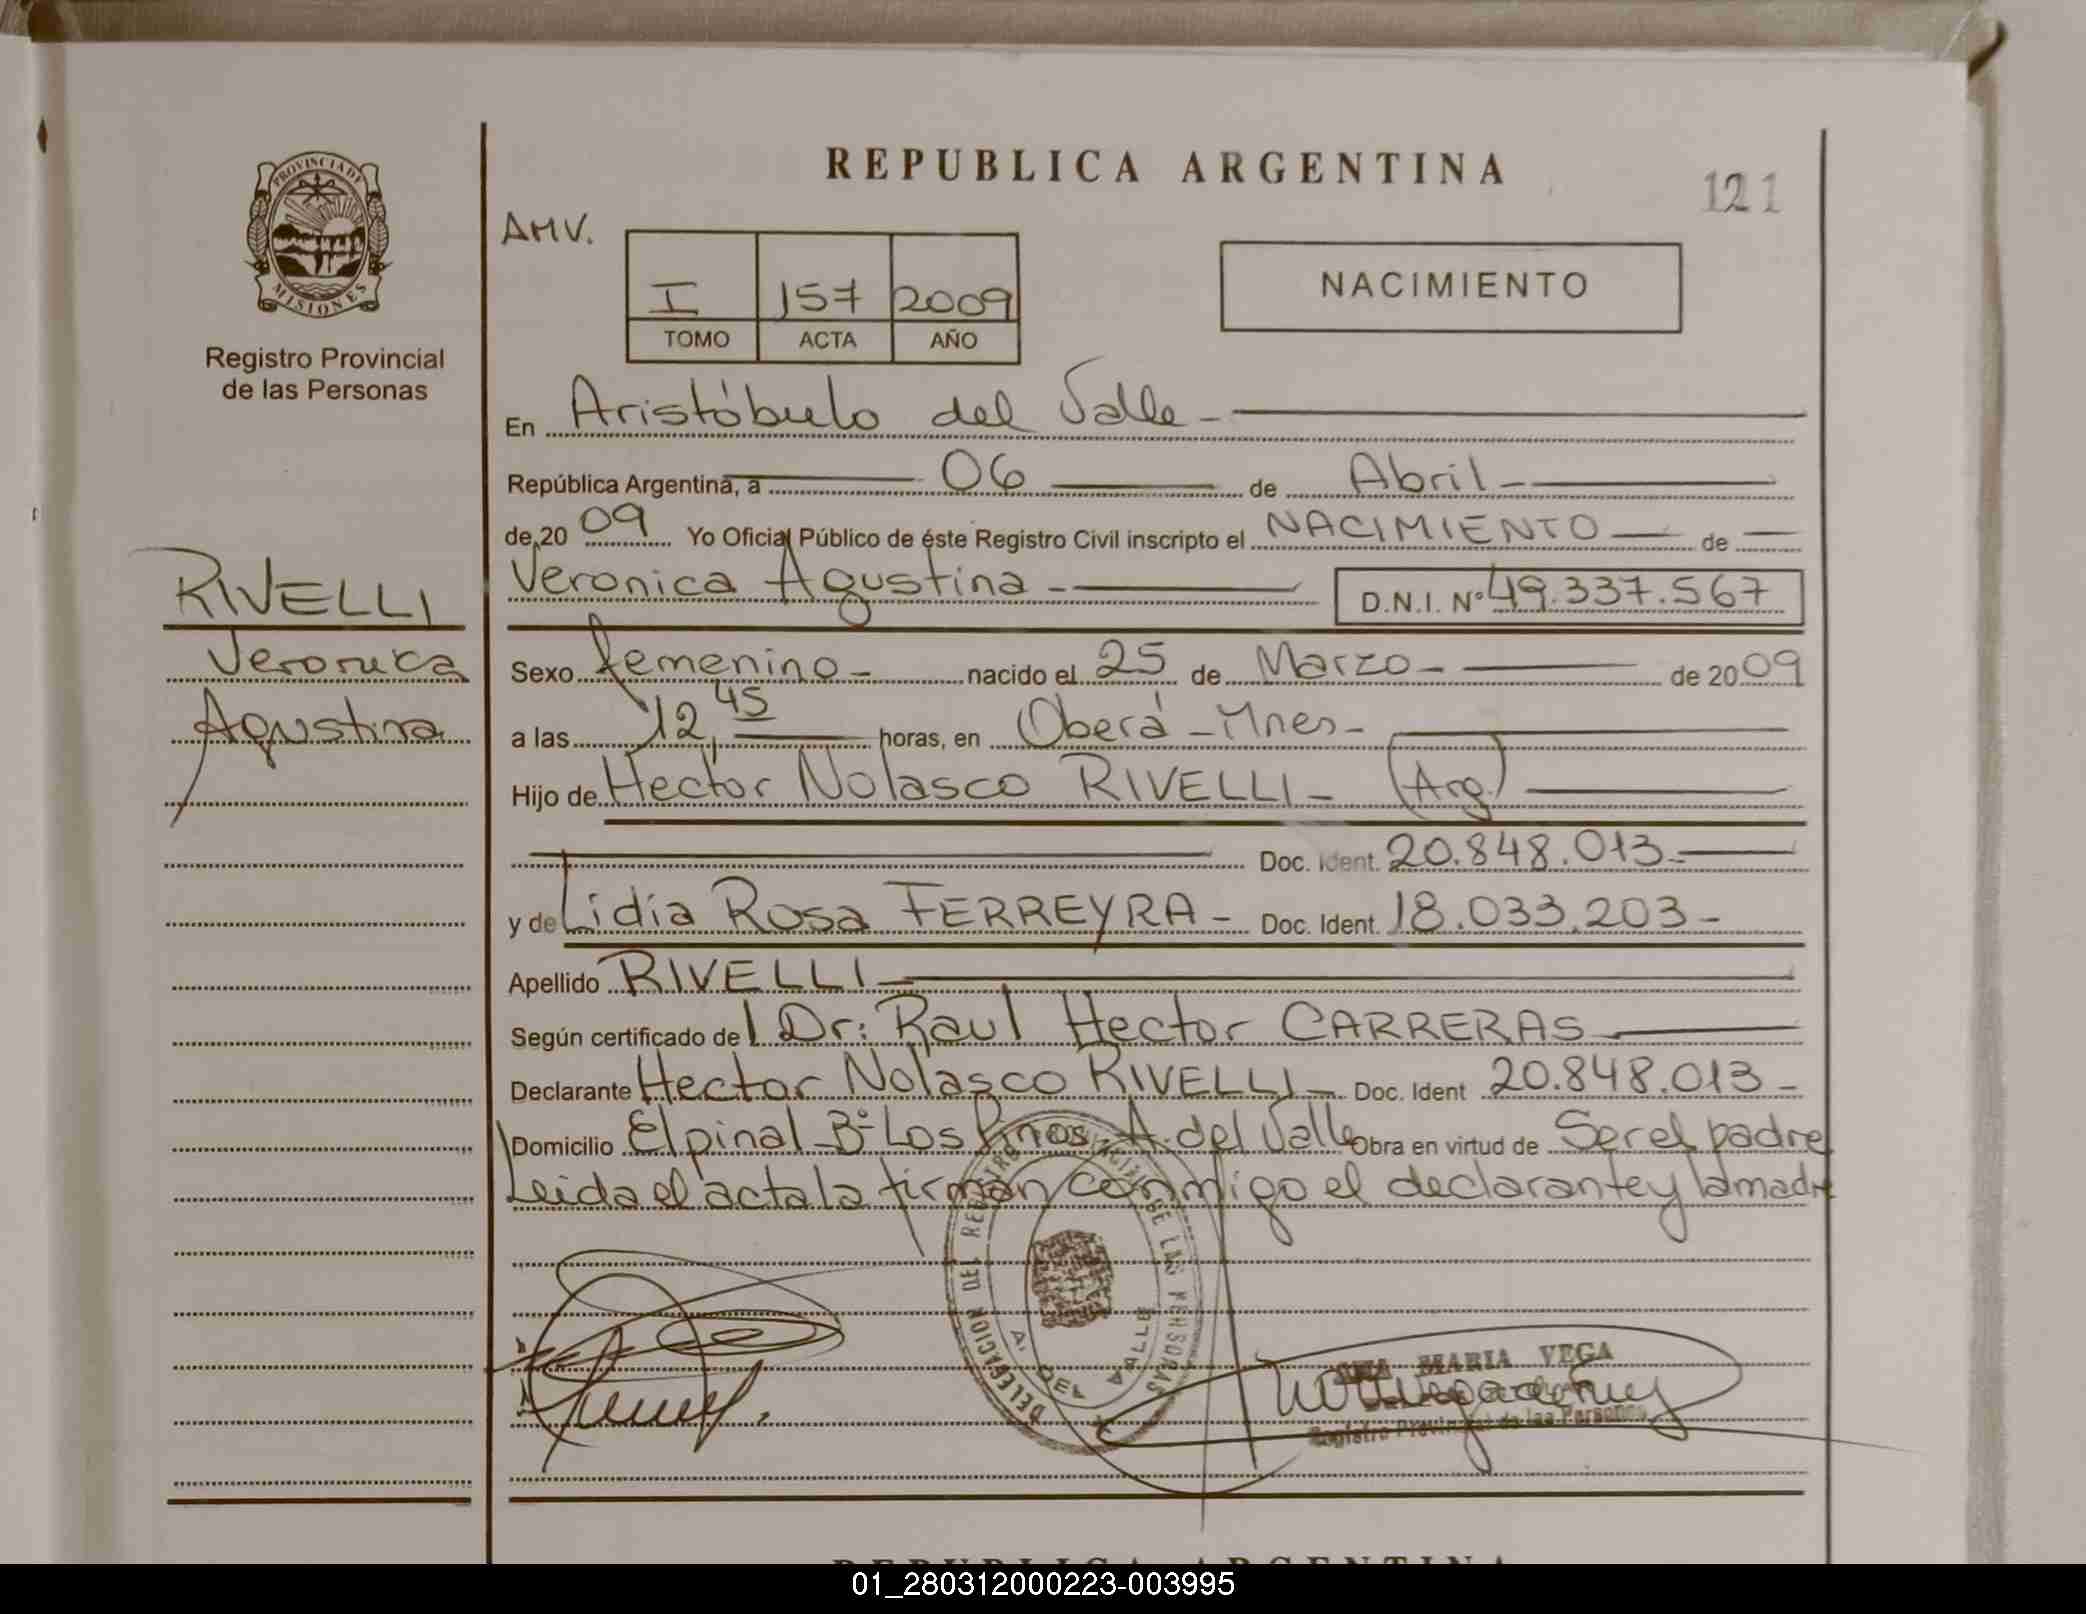 REPUBLICA ARGENTINA
121
PROVINCIA DE
MISIONES
Registro Provincial
de las Personas
AMV.
I 157 2009
TOMO ACTA AÑO
NACIMIENTO
En Aristóbulo del Valle -
República Argentina, a 06 de Abril -
de 20 09 Yo Oficial Público de éste Registro Civil inscripto el NACIMIENTO de
Veronica Agustina - D.N.I. Nº 49.337.567
RIVELLI
Veronica
Agustina
Sexo femenino - nacido el 25 de Marzo - de 20 09
a las 12,45 horas, en Oberá - Mnes -
Hijo de Hector Nolasco RIVELLI - (Arg)
Doc. Ident. 20.848.013 -
y de Lidia Rosa FERREYRA - Doc. Ident. 18.033.203 -
Apellido RIVELLI -
Según certificado de l Dr: Raul Hector CARRERAS
Declarante Hector Nolasco RIVELLI - Doc. Ident 20.848.013 -
Domicilio El pinal - Bº Los Pinos - A. del Valle Obra en virtud de Ser el padre
Leida el acta la firman conmigo el declarante y la madre
DELEGACION DEL REGISTRO PROVINCIAL DE LAS PERSONAS
A. DEL VALLE
MARIA VEGA
Registro Provincial de las Personas
REPUBLICA ARGENTINA
01_280312000223-003995